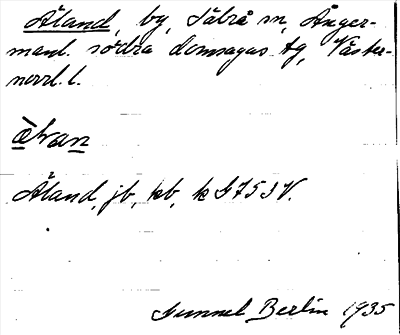 Åland, by, Säbrå sn, Ånger-
manl. södra domsagas tg, Väster-
norrl. l.
Åland, jb, kb, k G753 V.
Gunnel Berlin 1935